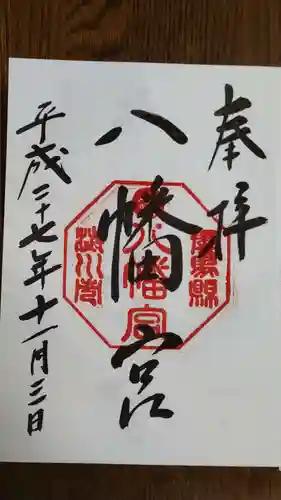 奉拝
八幡宮
平成二十七年十一月三日
八幡宮
群馬縣
渋川市